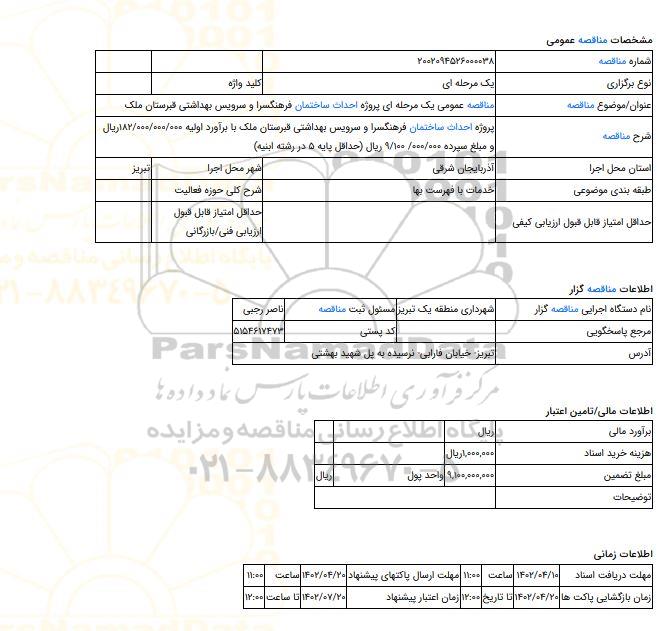 مشخصات مناقصه عمومی
شماره مناقصه ۲۰۰۲۰۹۴۵۲۶۰۰۰۰۳۸
نوع برگزاری یک مرحله ای کلید واژه
عنوان/موضوع مناقصه مناقصه عمومی یک مرحله ای پروژه احداث ساختمان فرهنگسرا و سرویس بهداشتی قبرستان ملک
شرح مناقصه پروژه احداث ساختمان فرهنگسرا و سرویس بهداشتی قبرستان ملک با برآورد اولیه ۱۸۲/۰۰۰/۰۰۰/۰۰۰ریال
و مبلغ سپرده ۰۰۰/۰۰۰/ ۹/۱۰۰ ریال (حداقل پایه ۵ در رشته ابنیه)
استان محل اجرا آذربایجان شرقی شهر محل اجرا تبریز
طبقه بندی موضوعی خدمات با فهرست بها شرح کلی حوزه فعالیت
حداقل امتیاز قابل قبول ارزیابی کیفی حداقل امتیاز قابل قبول
ارزیابی فنی/بازرگانی
اطلاعات مناقصه گزار
نام دستگاه اجرایی مناقصه گزار شهرداری منطقه یک تبریز مسئول ثبت مناقصه ناصر رجبی
مرجع پاسخگویی کد پستی ۵۱۵۴۶۱۷۴۷۳
آدرس تبریز- خیابان فارابی- نرسیده به پل شهید بهشتی
ParsNamadData
مرکز فرآوری اطلاعات پارس نماد داده ها
اطلاعات مالی/تامین اعتبار
پایگاه اطلاع رسانی مناقصه و مزایده
برآورد مالی ریال
هزینه خرید اسناد ۱,۰۰۰,۰۰۰ریال
۰۲۱-۸۸۳۴۹۶۷۰-۵
مبلغ تضمین ۹,۱۰۰,۰۰۰,۰۰۰ واحد پول ریال
توضیحات
اطلاعات زمانی
مهلت دریافت اسناد ۱۴۰۲/۰۴/۱۰ ساعت ۱۱:۰۰ مهلت ارسال پاکتهای پیشنهاد ۱۴۰۲/۰۴/۲۰ ساعت ۱۱:۰۰
زمان بازگشایی پاکت ها ۱۴۰۲/۰۴/۲۰ تا تاریخ ۱۲:۰۰ زمان اعتبار پیشنهاد ۱۴۰۲/۰۷/۲۰ تا ساعت ۱۲:۰۰